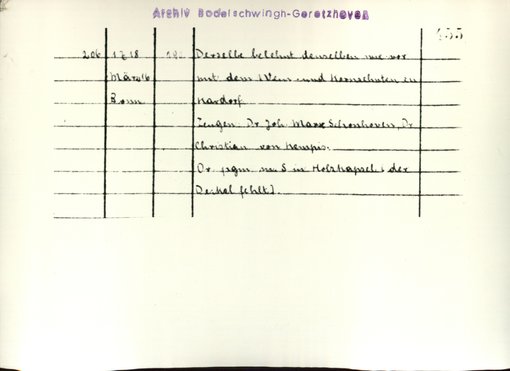 Archiv Bodelschwingh-Geretzhoven
455
206 1718 Derselbe belehnt denselben wie vor
März 16 mit dem Wein und Kornzehnten zu
Bonn Kardorf.
Zeugen Dr. Joh. Marx Schönhoven, Dr
Christian von Kempis.
Or. prgm. m. S in Holzkapsel (der
Deckel fehlt).